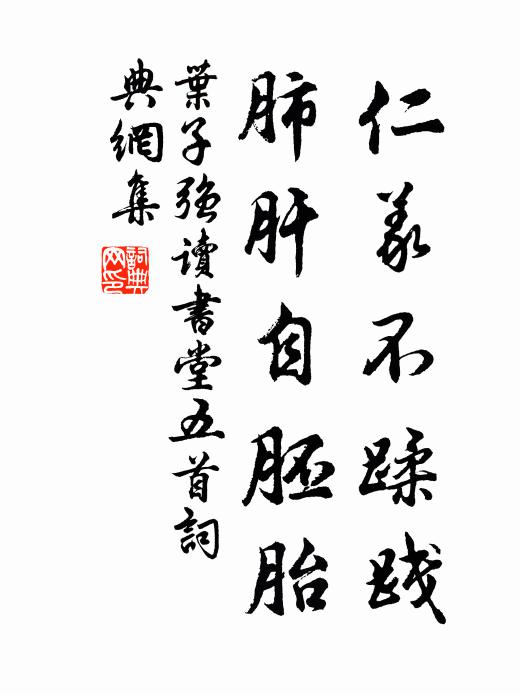 仁义不蹂践
肺肝自胚胎
葉子强讀書堂五首詞
典網集
詞典网印